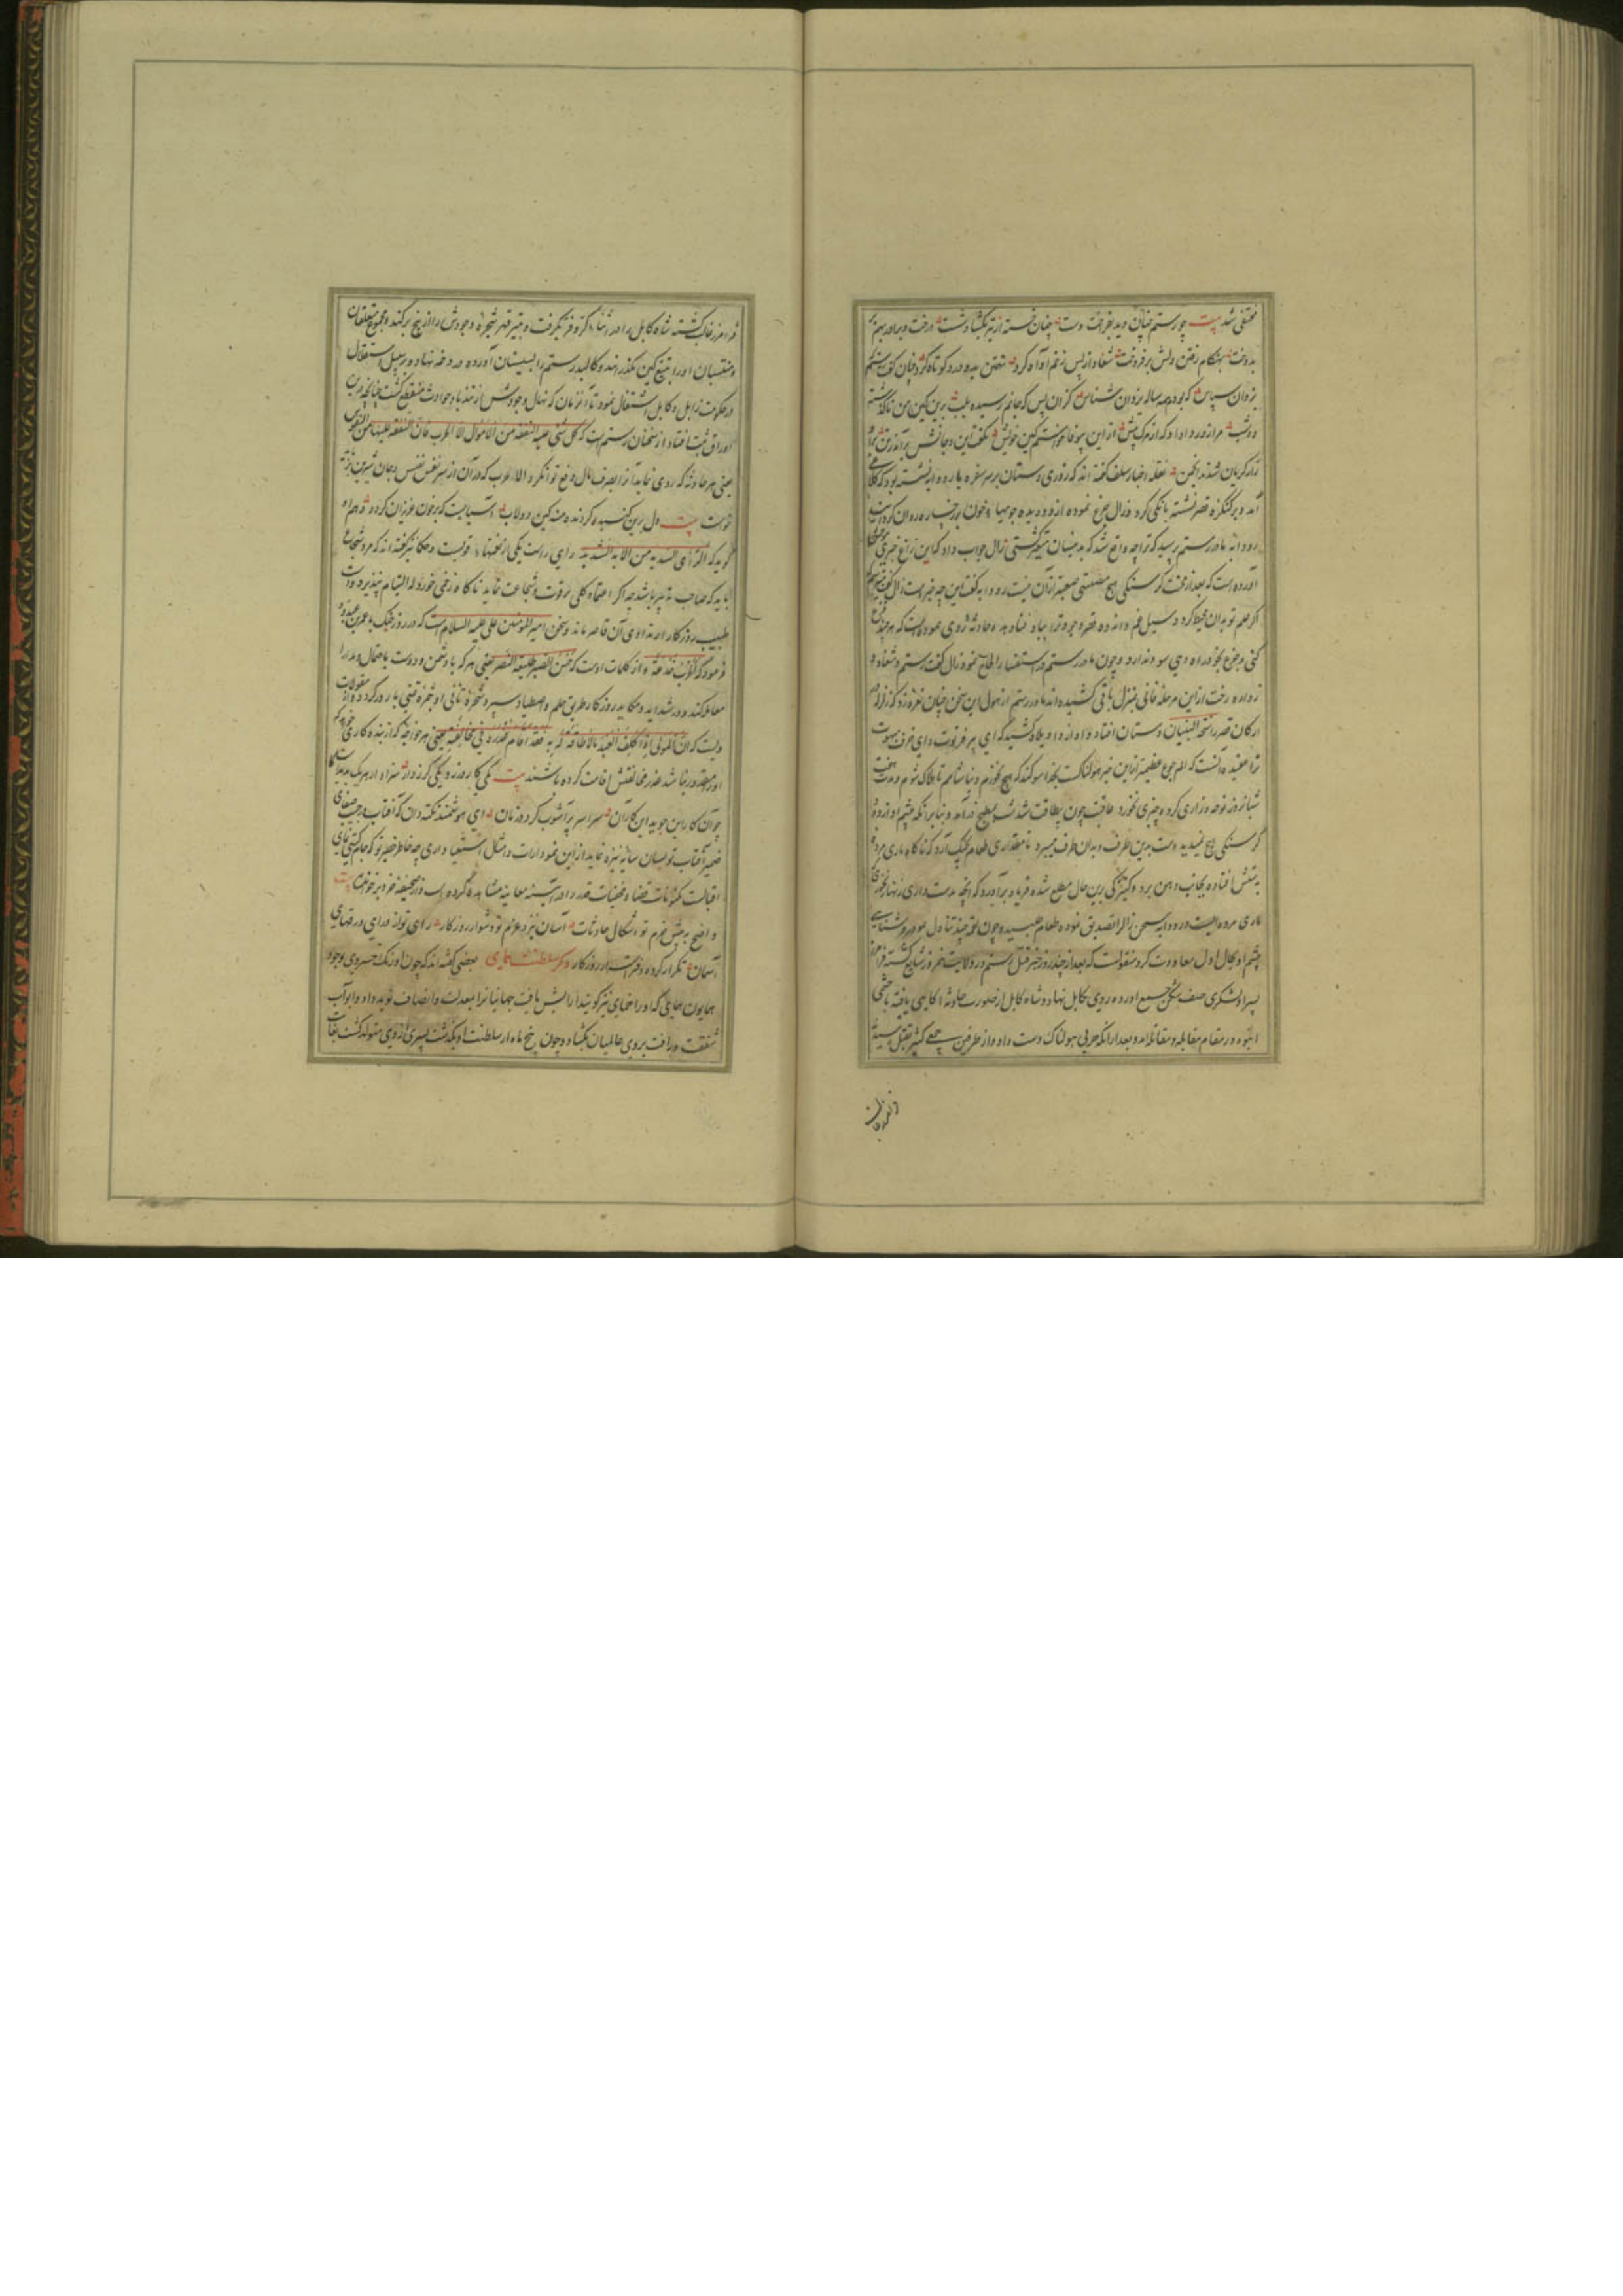 مختفی شد بیت چو رستم چنان دید بفراخت دست چنان خسته از تیر بگشاد شست درخت و برادر بهم بر
بدوخت بهنگام رفتن دلش برفروخت شغاد از پس زخم او آه کرد تهمتن برو درد کوتاه کرد چنان گفت رستم
یزدان سپاس که بودم همه ساله یزدان شناس کزان پس که جانم رسیده بلب برین کین من ناگذشته
دو شب مرا زور دادی که از مرگ پیش ازین بیوفا خواستم کین خویش بگفت این و جانش برآمد ز تن برو
زار گریان شدند انجمن نقله اخبار سلف گفته اند که روزی دستان بر سر سفره با رودابه نشسته بود که کلاغی
آمد و بر کنگره قصر نشسته بانگی کرد و زال جزع نموده از دو دیده جویها خون بر رخساره روان کرد
رودابه مادر رستم پرسید که ترا چه واقع شد که بدینسان متغیر گشتی زال جواب داد که این زاغ خبری
آورده است که بعد از محنت گرسنگی هیچ مصیبتی صعبتر از آن نیست رودابه گفت این چه خبر است زال گفت
اگر علم تو بدان محیط گردد سیل غم و اندوه قصر وجود ترا بباد فنا دهد و حادثه روی نموده است که هر چند جزع
کنی و جزع بخود راه دهی سود ندارد و چون مادر رستم در استفسار الحاح نمود زال گفت رستم و شغاد و
زواره رخت ازین مرحله فانی بمنزل باقی کشیده اند مادر رستم از هول این سخن چنان نعره زد که زلزله در
ارکان قصر راسخة البنیان دستان افتاد و آه از واویلاه کشید که ای پیر فرتوت و ای خرف مبهوت
ترا عقیده آنست که الم جوع عظیمتر ازین خبر هولناکست بخدا سوگند که هیچ نخورم و نیاشامم تا هلاک شوم و مدت هفت
شبانروز نوحه و زاری کرد و چیزی نخورد عاقبت چون بیطاقت شد شب بمطبخ درآمد و بنابر آنکه چشم او از دود
گرسنگی هیچ نمیدید دست بدین طرف و بدان طرف میبرد تا مقداری طعام بچنگ آرد که ناگاه ماری مرده
بدستش افتاده بجانب دهن برد و کنیزکی برین حال مطلع شده فریاد برآورد که آنچه بدست داری زنهار نخوری
ماری مرده است رودابه سخن زال را تصدیق نموده طعام طلبید و چون لقمه چند تناول نمود روشنایی
چشم او بحال اول معاودت کرد منقولست که بعد از چند روز خبر قتل رستم در ولایت نیمروز شایع گشته فرامرز
پسر او لشکری صف شکن جمع آورده روی بکابل نهاد و شاه کابل از صورت حادثه آگاهی یافته با جمعی
انبوه در مقام مقابله و مقاتله آمد و بعد از آنکه حربی هولناک دست داد و از طرفین جمعی کثیر بقتل رسیدند
فرامرز غالب گشته شاه کابل را در اثنای کر و فر بگرفت و بتبر قهر شجره وجودش را از بیخ برکند و مجموع متعلقان
و منتسبان او را بتیغ کین بگذرانید و کالبد رستم را بسیستان آورده در دخمه نهاد و بر سبیل استقلال
در حکومت زابل و کابل اشتغال نمود تا آن زمان که نهال وجودش از تندباد حوادث منقطع گشت چنانچه برین
اوراق ثبت افتاد از سخنان رستم است که کل شئ علیه النفقة من الاموال الا الحرب فان النفقة علیها من النفوس
یعنی هر حادثه که روی نماید آنرا بصرف مال دفع توان کرد الا حرب که در آن از سر نفس نفیس و جان شیرین
بیت دل برین گنبد گردنده منه کین دولاب آسیاییست که بر خون عزیزان گردد و هم او
گوید که الرأی السدید من الاید الشدید رای راست یکی از نعمتها قویست و حکما نیز گفته اند که مرد شجاع
باید که صاحب تدبیر باشد چه اگر اعتماد کلی بر قوت و شجاعت نماید ناگاه زخمی خورد که التیام نپذیرد و
طبیب روزگار از مداوای آن قاصر ماند و سخن امیر المؤمنین علی علیه السلام است که در روز جنگ با عمرو بن عبدود
فرمود که الحرب خدعة و از کلمات اوست که حسن الصبر طلیعة النصر یعنی هر که با دشمن و دوست باحتمال و مدارا
معامله کند و در شداید و مکاید روزگار طریق حلم و اصطبار سپرد شجره تأنی او بثمره تمنی بارور گردد و از مقولات
ویست که ان المولی اذا کلف العبد ما لا طاقة له به فقد اقام عذره فی مخالفته یعنی هر خواجه که از بنده کاری خواهد که
او را مقدور نباشد عذر مخالفتش اقامت کرده باشند بیت
چو آن کار این جوید این کار آن سراسر پر آشوب گردد زمان ای هوشمند نکته دان که آفتاب در جنب صفای
ضمیر آفتاب تو بسان سایه تیره نماید ازین نمودارات و امثال استغنا داری چه خاطر خطیر تو که جام گیتی نمای
اقبالست مکنونات قضا و مخفیات قدر را در آینه معاینه مشاهده کرده است و از صحیفه خرد برخوانده بیت
واضح به پیش عزم تو اشکال حادثات آسان به نزد عزم تو دشوار روزگار رای تو از ورای ورقهای
آسمان تکرار کرده دفتر اسرار روزگار ذکر سلطنت همای بعضی گفته اند که چون اورنگ خسروی بوجود
همایون همای که او را خمای نیز گویند آرایش یافت جهانیانرا بمعدلت و انصاف نوید داد و ابواب
شفقت و رأفت بر روی عالمیان بگشاد و چون پنج ماه از سلطنت او بگذشت پسری از وی متولد گشت